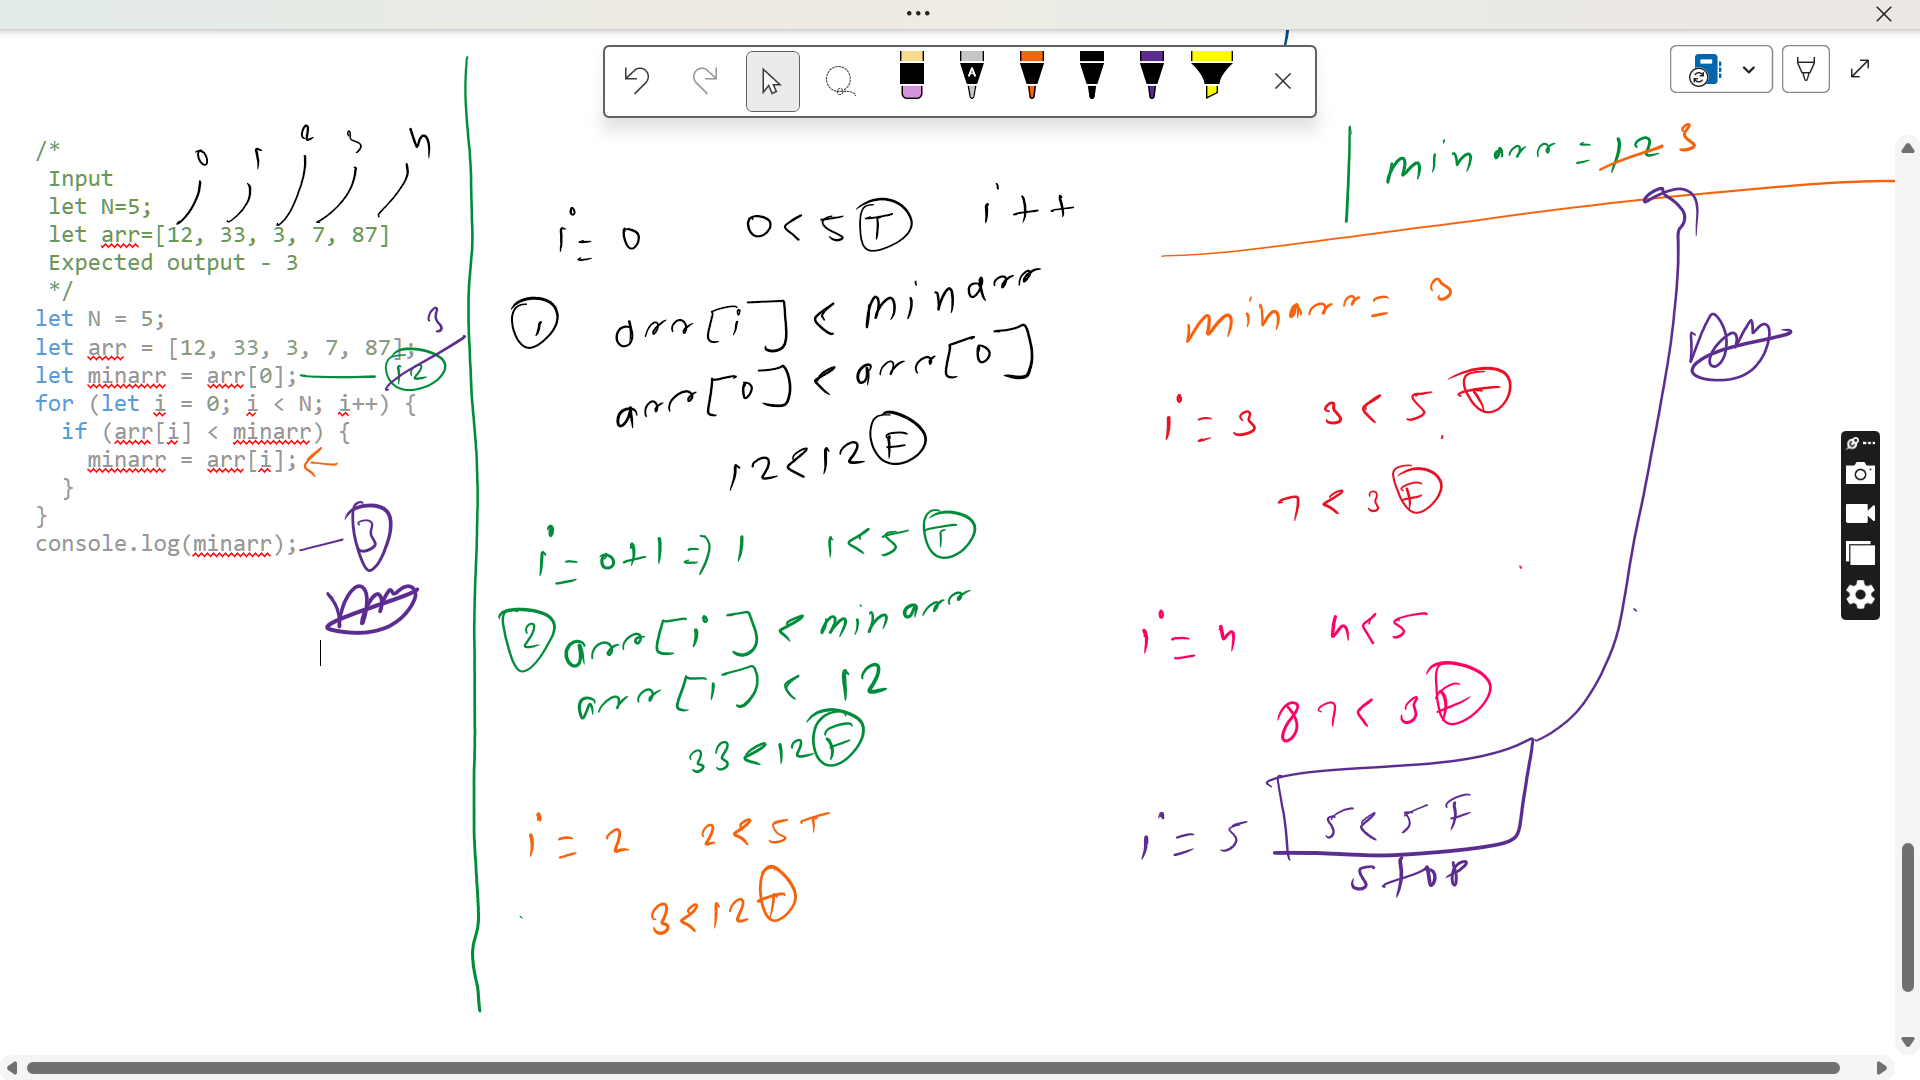 /*
Input
let N=5;
let arr=[12, 33, 3, 7, 87]
Expected output - 3
*/
let N = 5;
let arr = [12, 33, 3, 7, 87];
let minarr = arr[0];
for (let i = 0; i < N; i++) {
if (arr[i] < minarr) {
minarr = arr[i];
}
}
console.log(minarr);
0 1 2 3 4
3
12
3
i = 0 0 < 5 T i++
1 arr[i] < minarr
arr[0] < arr[0]
12 < 12 F
i = 0+1 => 1 1 < 5 T
2 arr[i] < minarr
arr[1] < 12
33 < 12 F
i = 2 2 < 5 T
3 < 12 T
minarr = 12 3
minarr = 3
i = 3 3 < 5 T
7 < 3 F
i = 4 4 < 5
87 < 3 F
i = 5 5 < 5 F
stop